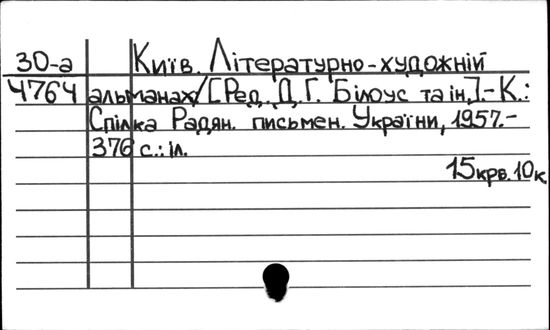 30-а Київ. Літературно-художній
4764 альманах/[Ред. Д.Г. Білоус та ін.].-К.:
Спілка Радян. письмен. України, 1957.-
376 с.: іл.
15крв.10к.